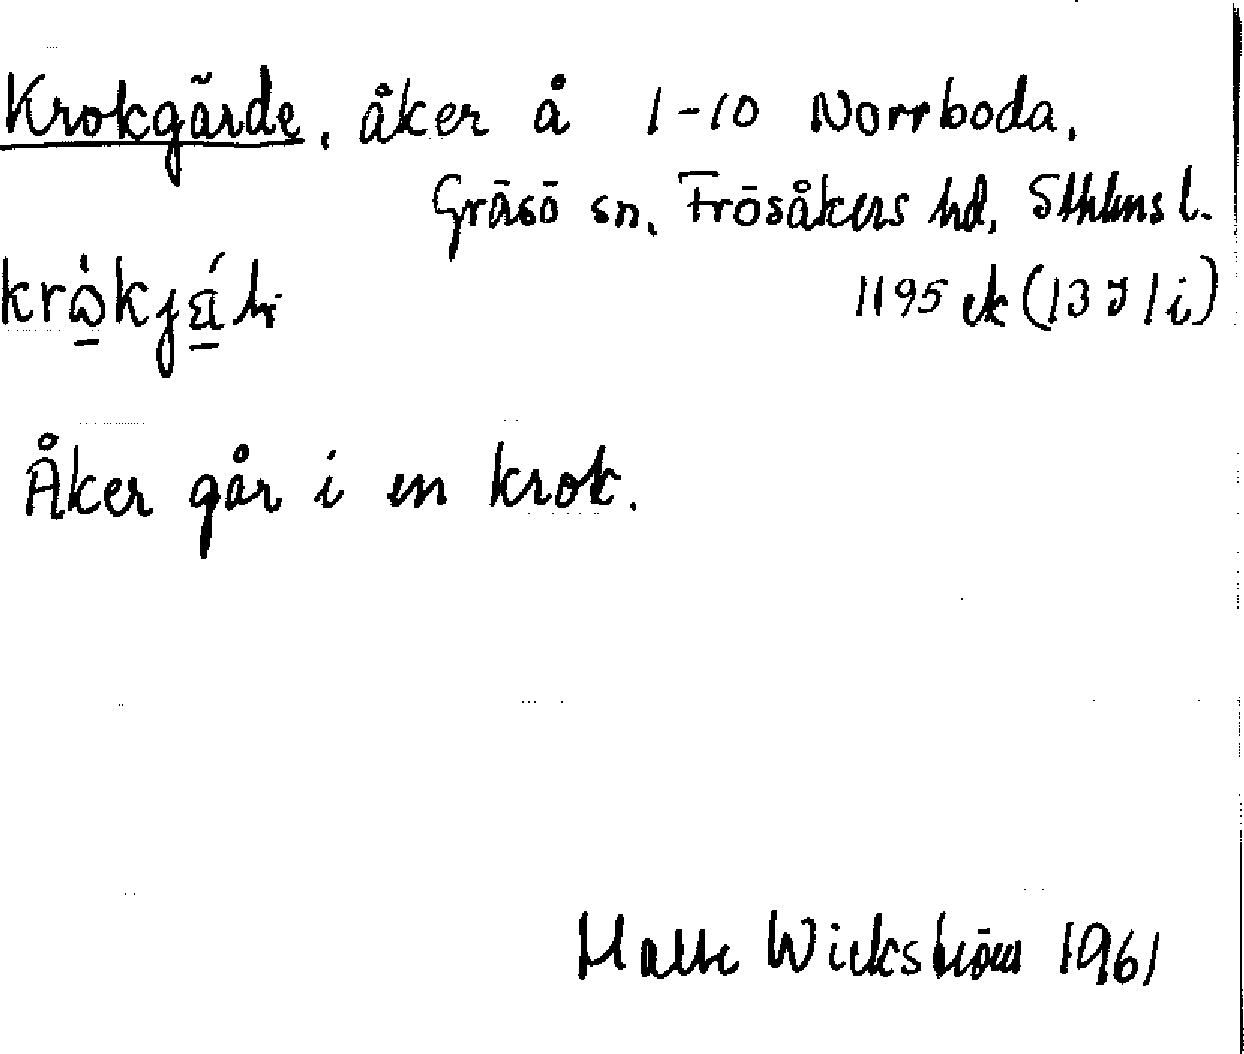 Krokgärde, åker å 1-10 Norrboda,
Gräsö sn, Frösåkers hd, Sthlms l.
1195 ek (13 I 1 i)
Åker går i en krok.
Wickström 1961